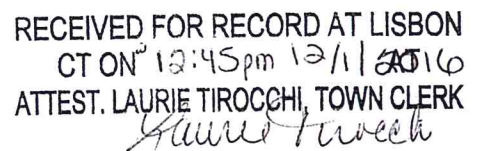 RECEIVED FOR RECORD AT LISBON
CT ON 12:45pm 12/1/2016
ATTEST. LAURIE TIROCCHI, TOWN CLERK
Laurie Tirocchi